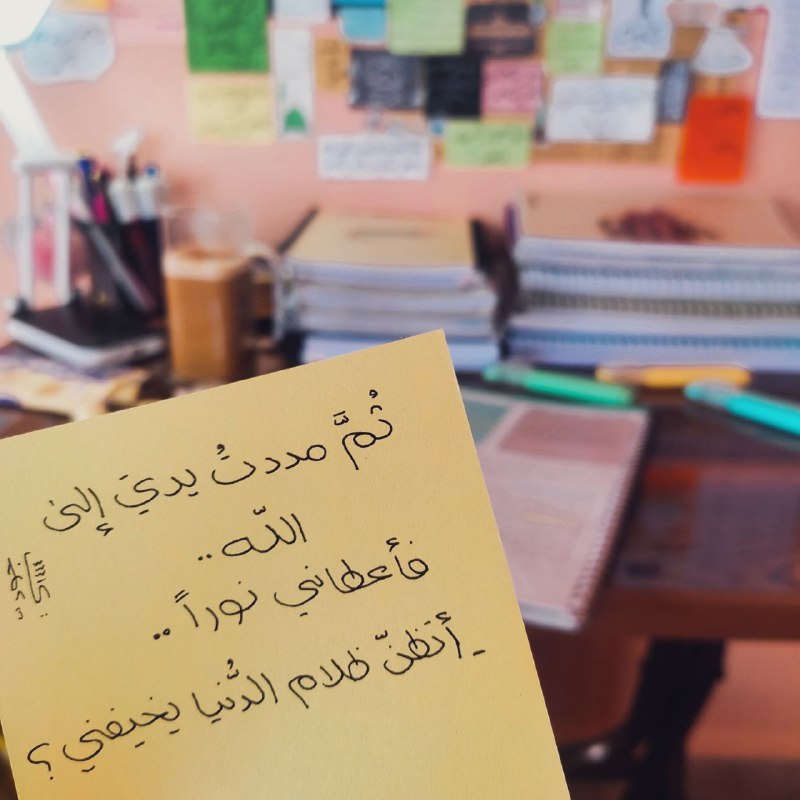 ثُمَّ مددتُ يديَ إلىٰ
اللّه ..
فأعطاني نوراً ..
ـ أتظنّ ظلام الدُّنيا يخيفني ؟